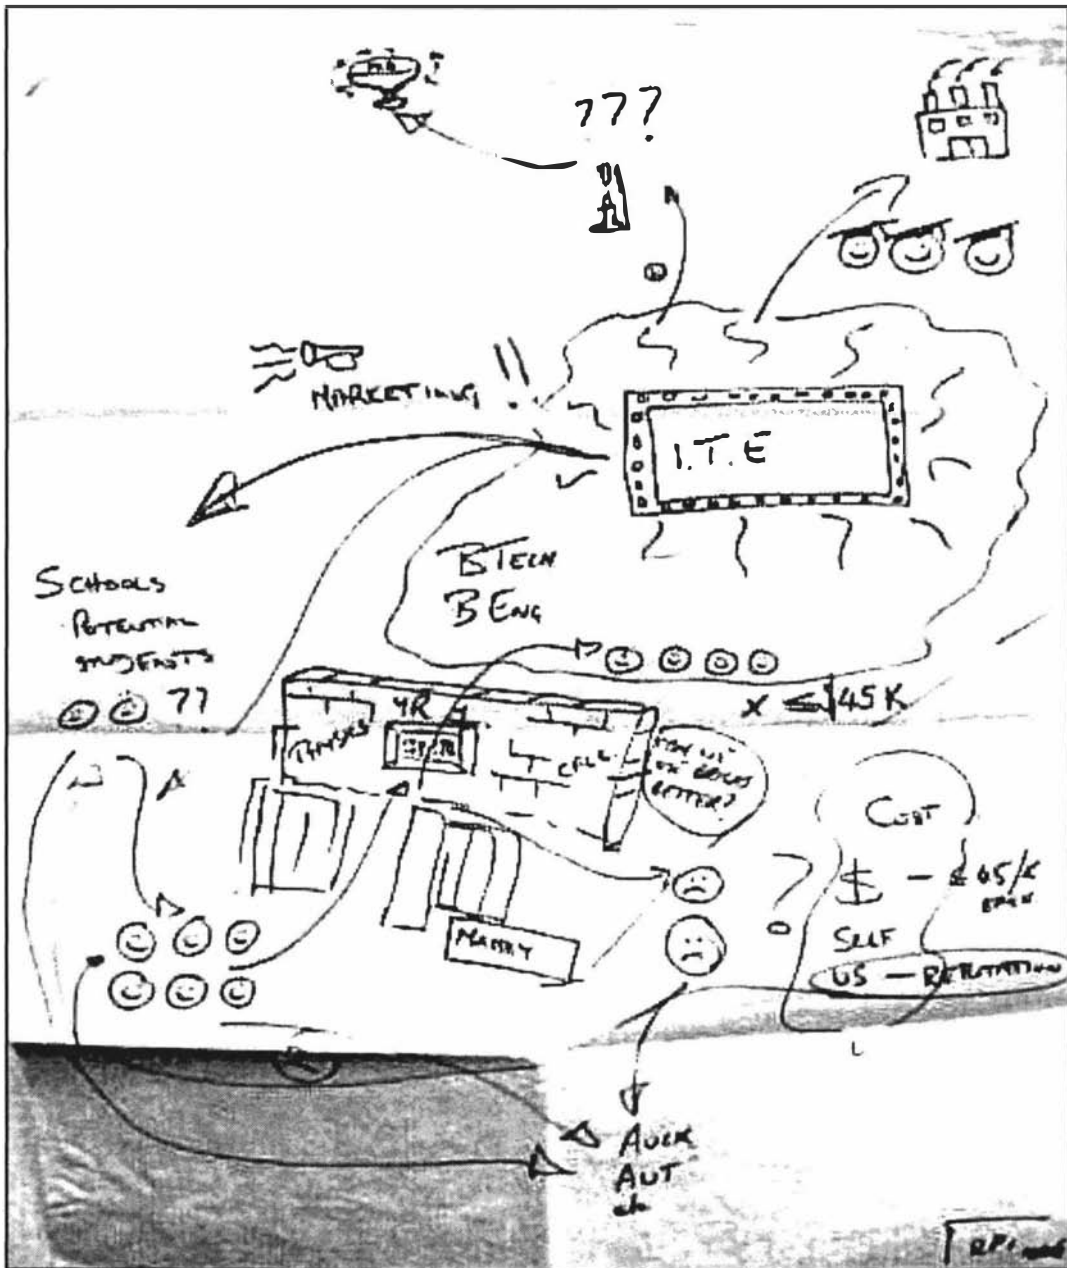 ???
MARKETING !!
I.T.E
BTECH
B ENG
SCHOOLS
POTENTIAL
STUDENTS
??
X ≤ $45K
YR
BETTER?
COST
$ — ≤ 45/K
SELF
US — REPUTATION
?
MASSEY
AUCK
AUT
etc